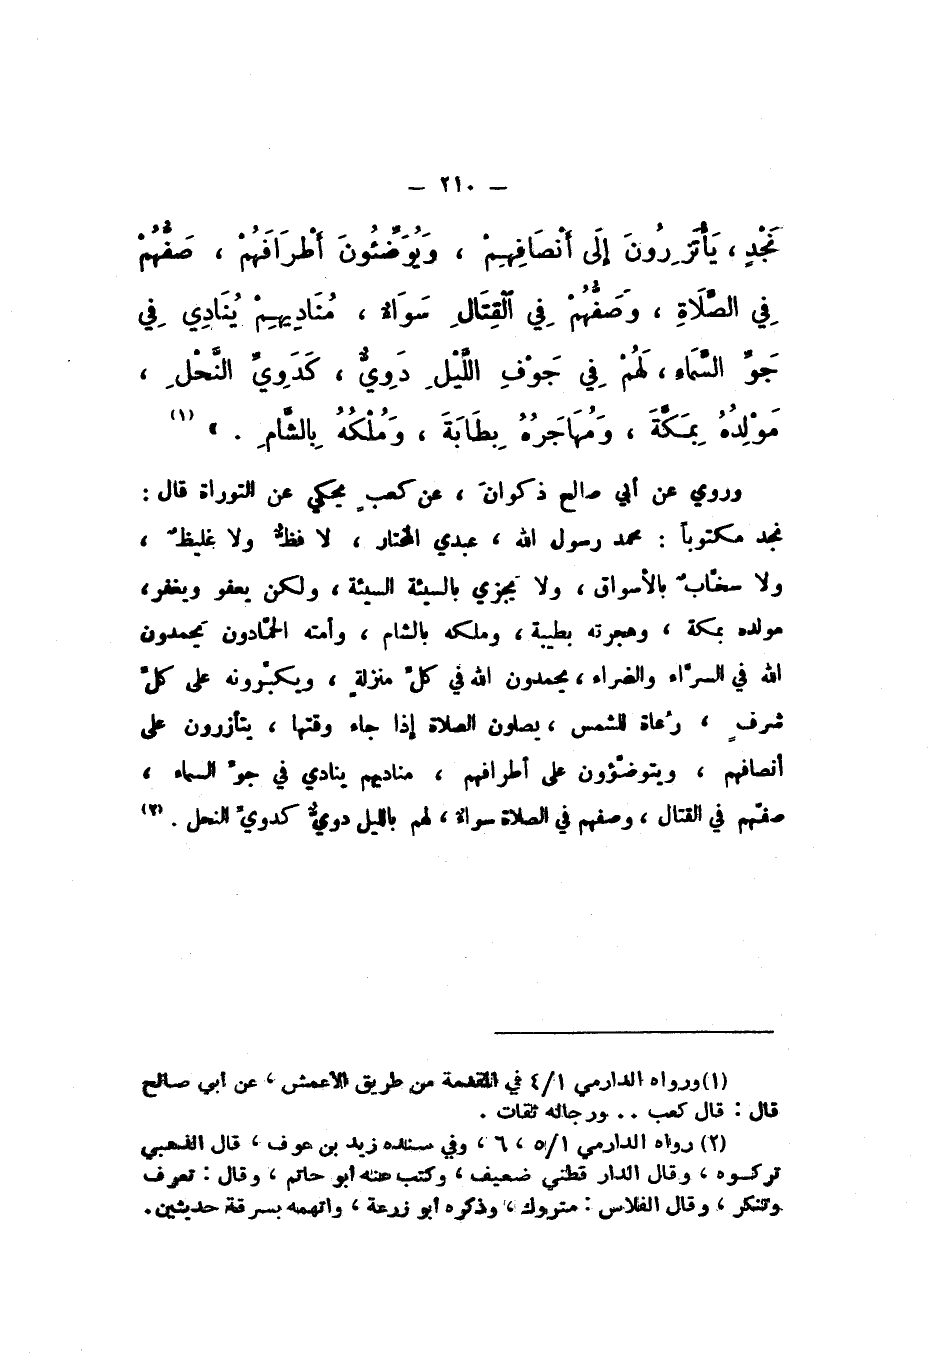 — ٢١٠ —
نَجْدٍ ، يَأْتَزِرُونَ إِلَى أَنْصَافِهِمْ ، وَيُوَضِّئُونَ أَطْرَافَهُمْ ، صَفُّهُمْ
فِي الصَّلَاةِ ، وَصَفُّهُمْ فِي الْقِتَالِ سَوَاءٌ ، مُنَادِيهِمْ يُنَادِي فِي
جَوِّ السَّمَاءِ ، لَهُمْ فِي جَوْفِ اللَّيْلِ دَوِيٌّ ، كَدَوِيِّ النَّحْلِ ،
مَوْلِدُهُ بِمَكَّةَ ، وَمُهَاجَرُهُ بِطَابَةَ ، وَمُلْكُهُ بِالشَّامِ . » (١)
وروي عن أبي صالح ذكوانَ ، عن كعبٍ يحكي عن التوراة قال :
نجد مكتوباً : محمد رسول الله ، عبدي المختار ، لا فظٌّ ولا غليظٌ ،
ولا سخَّابٌ بالأسواق ، ولا يَجزي بالسيئة السيئة ، ولكن يعفو ويغفر ،
مولده بمكة ، وهجرته بطيبة ، وملكه بالشام ، وأمته الحمَّادون يَحمدون
الله في السرَّاء والضراء ، يحمدون الله في كلِّ منزلةٍ ، ويكبِّرونه على كلِّ
شرفٍ ، رُعاة للشمس ، يصلون الصلاة إذا جاء وقتها ، يتأزرون على
أنصافهم ، ويتوضّؤون على أطرافهم ، مناديهم ينادي في جوِّ السماء ،
صفّهم في القتال ، وصفهم في الصلاة سواءٌ ، لهم بالليل دويٌّ كدويِّ النحل . (٢)
(١) ورواه الدارمي ٤/١ في المقدمة من طريق الأعمش ، عن أبي صالح
قال : قال كعب .. ورجاله ثقات .
(٢) رواه الدارمي ٥/١ ، ٦ ، وفي سنده زيد بن عوف ، قال الذهبي
تركوه ، وقال الدار قطني ضعيف ، وكتب عنه أبو حاتم ، وقال : تعرف
وتنكر ، وقال الفلاس : متروك ، وذكره أبو زرعة ، واتهمه بسرقة حديثين .